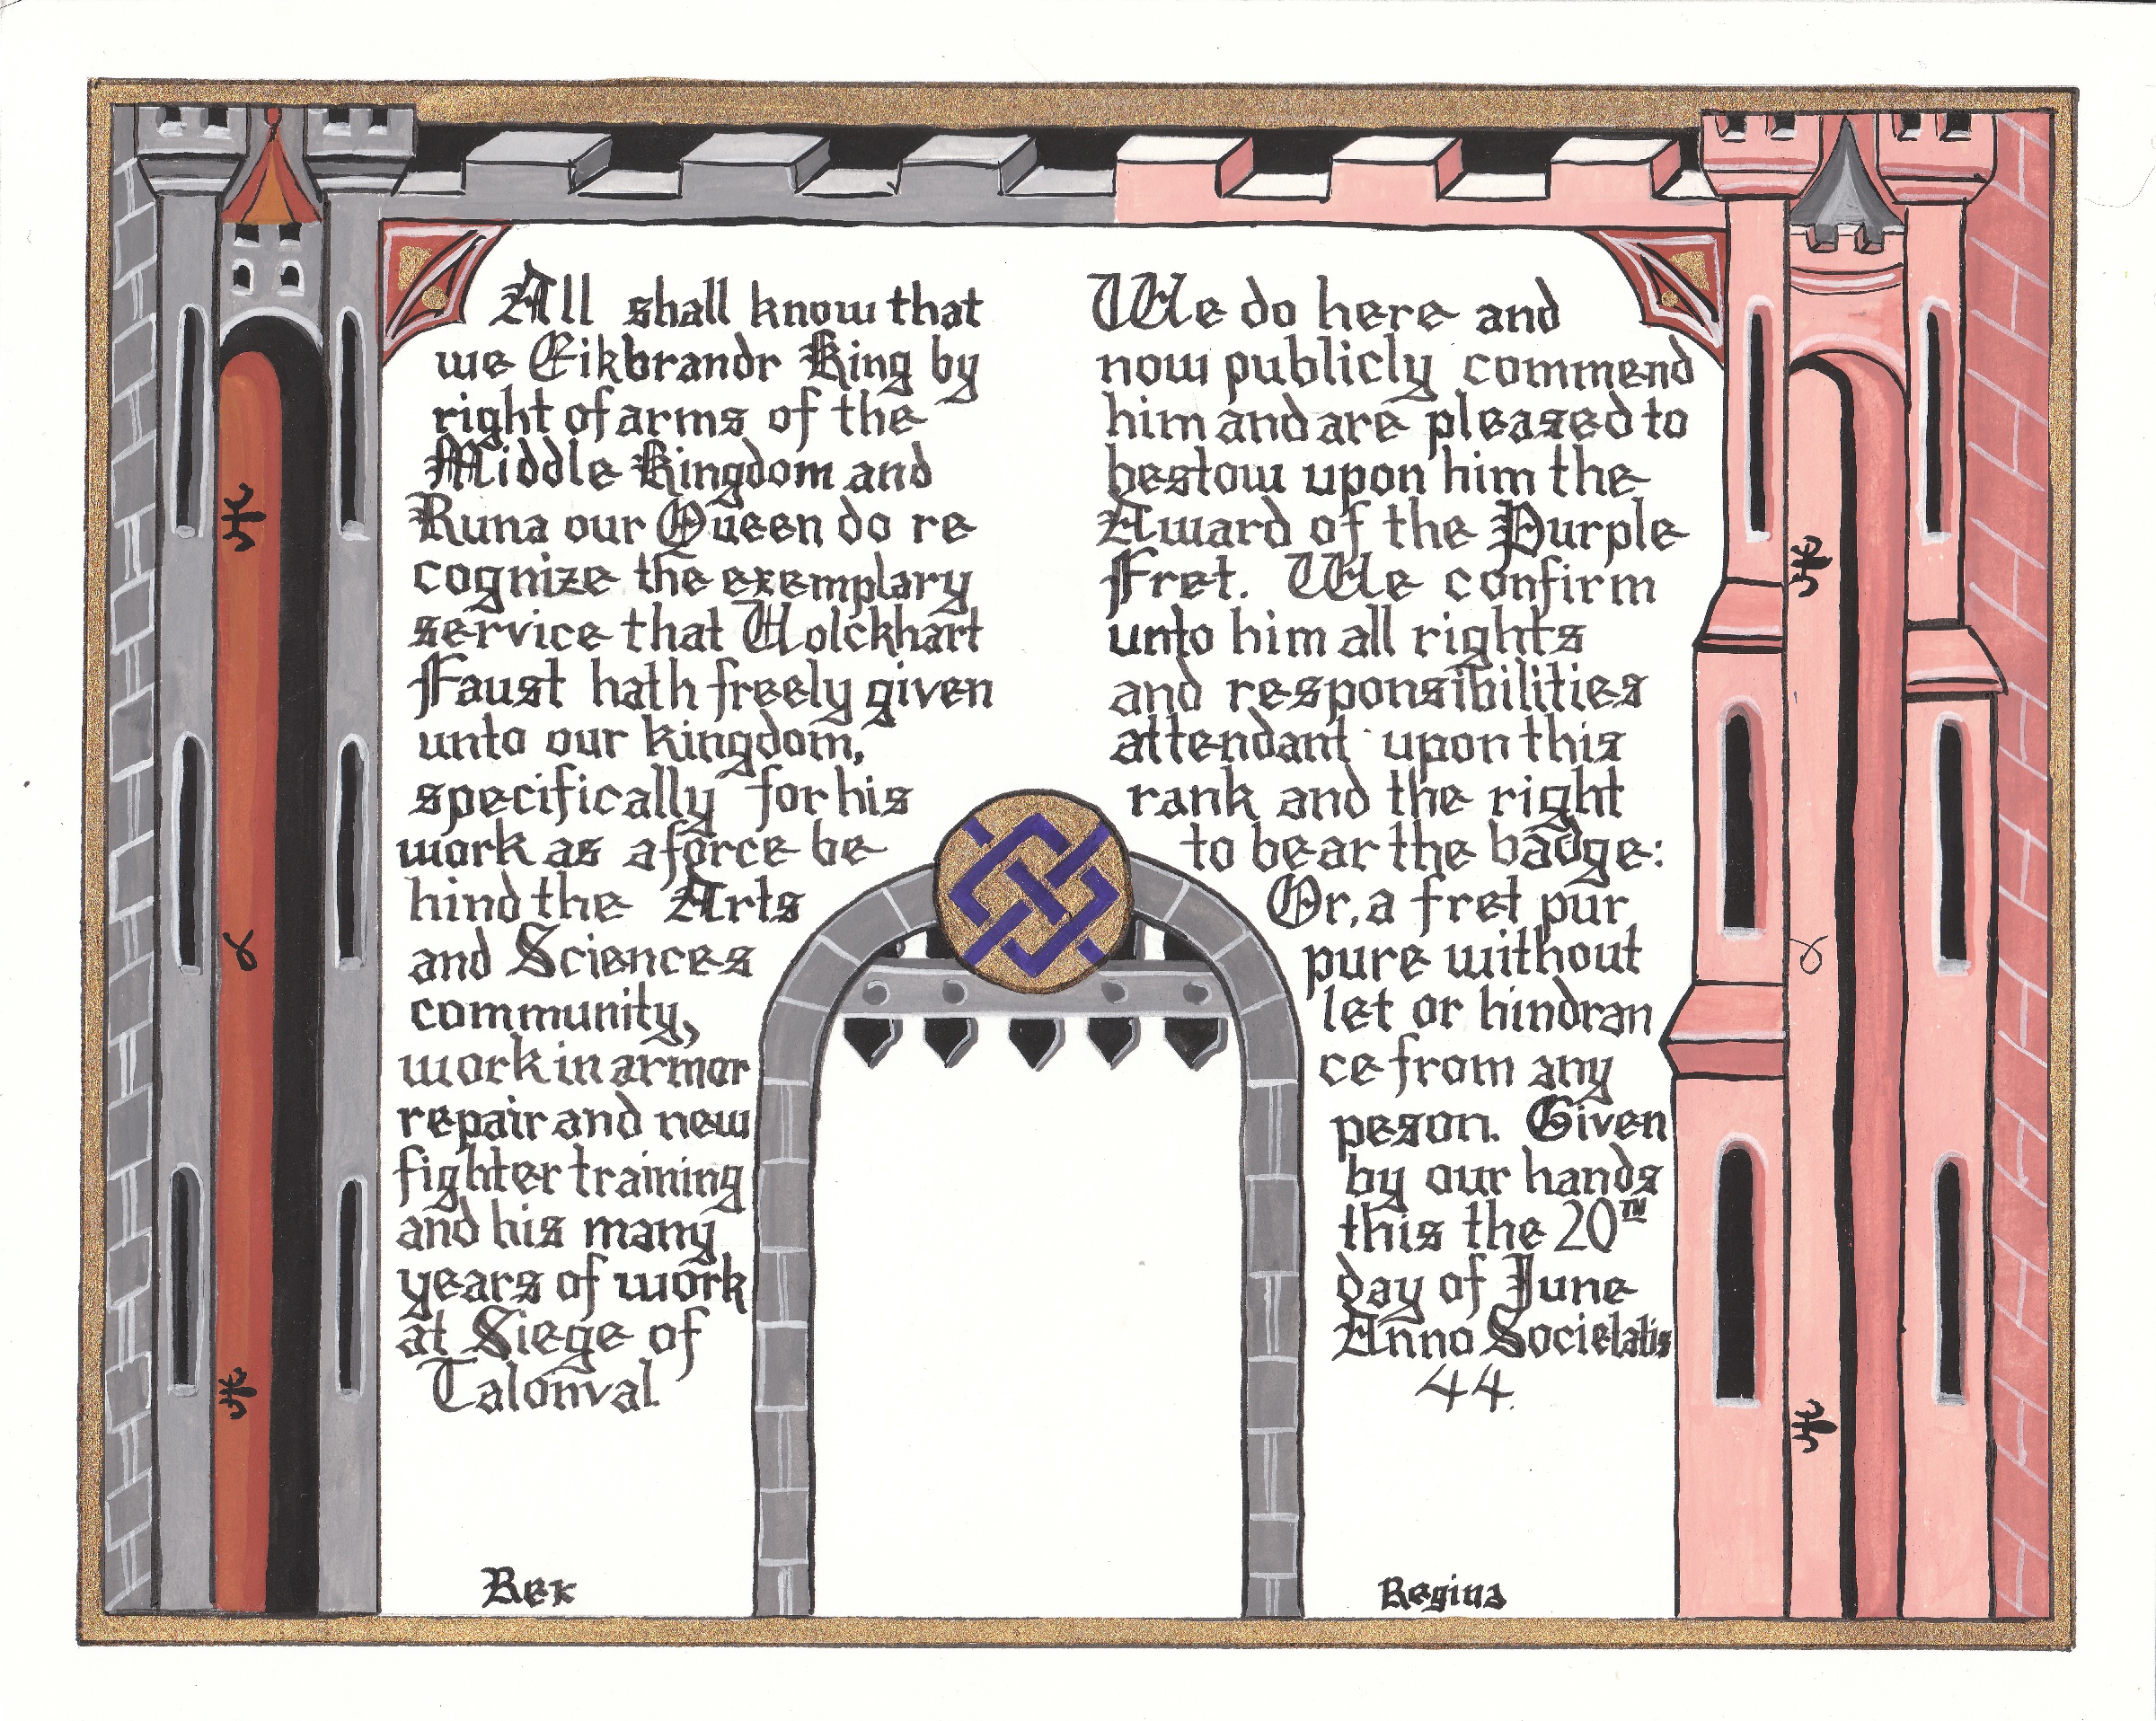 All shall know that
we Eikbrandr King by
right of arms of the
Middle Kingdom and
Runa our Queen do re
cognize the exemplary
service that Wolckhart
Faust hath freely given
unto our kingdom,
specifically for his
work as a force be
hind the Arts
and Sciences
community,
work in armor
repair and new
fighter training
and his many
years of work
at Siege of
Talonval.
Rek
We do here and
now publicly commend
him and are pleased to
bestow upon him the
Award of the Purple
Fret. We confirm
unto him all rights
and responsibilities
attendant upon this
rank and the right
to bear the badge:
Or, a fret pur
pure without
let or hindran
ce from any
peson. Given
by our hands
this the 20TH
day of June
Anno Societatis
44.
Regina